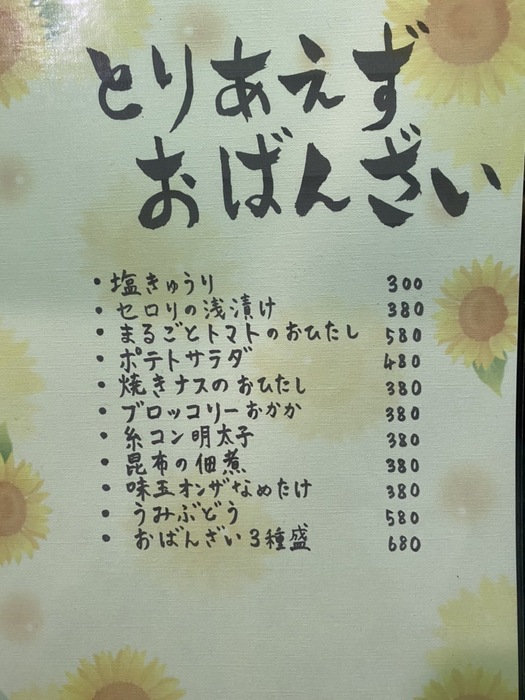 とりあえず
おばんざい
・塩きゅうり 300
・セロリの浅漬け 380
・まるごとトマトのおひたし 580
・ポテトサラダ 480
・焼きナスのおひたし 380
・ブロッコリーおかか 380
・糸コン明太子 380
・昆布の佃煮 380
・味玉オンザなめたけ 380
・うみぶどう 580
・おばんざい3種盛 680